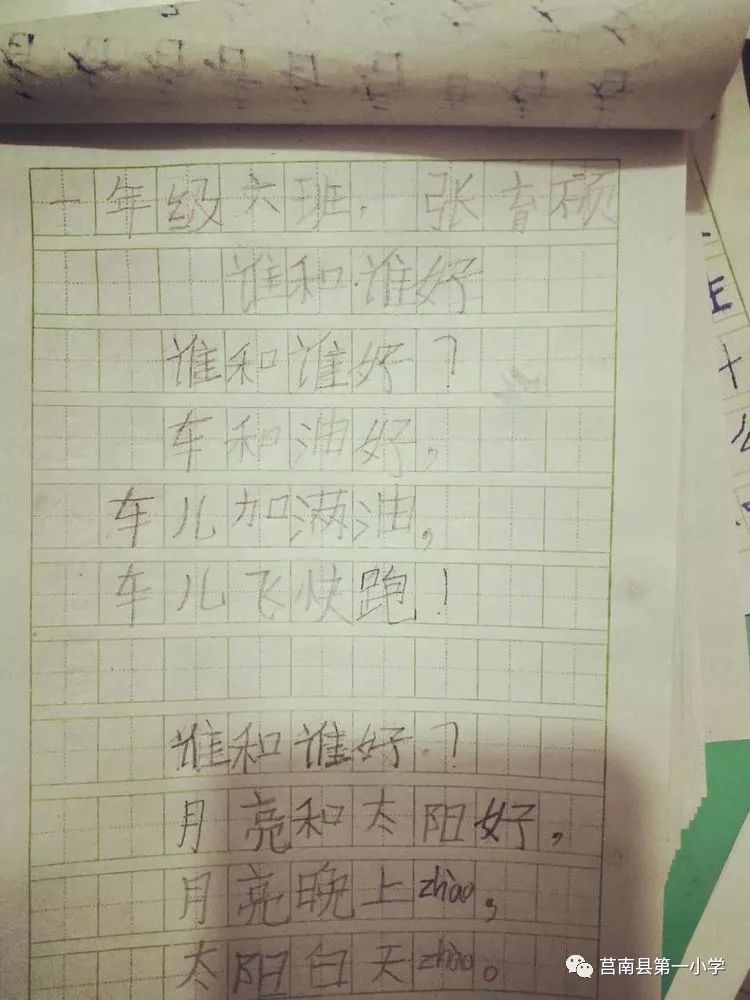 一年级六班. 张育硕
谁和谁好
谁和谁好?
车和油好,
车儿加满油,
车儿飞快跑!
谁和谁好.?
月亮和太阳好,
月亮晚上zhào,
太阳白天zhào。
莒南县第一小学